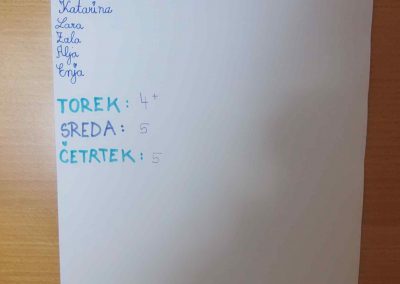 Katarina
Lara
Zala
Alja
Enja
TOREK: 4+
SREDA: 5
ČETRTEK: 5